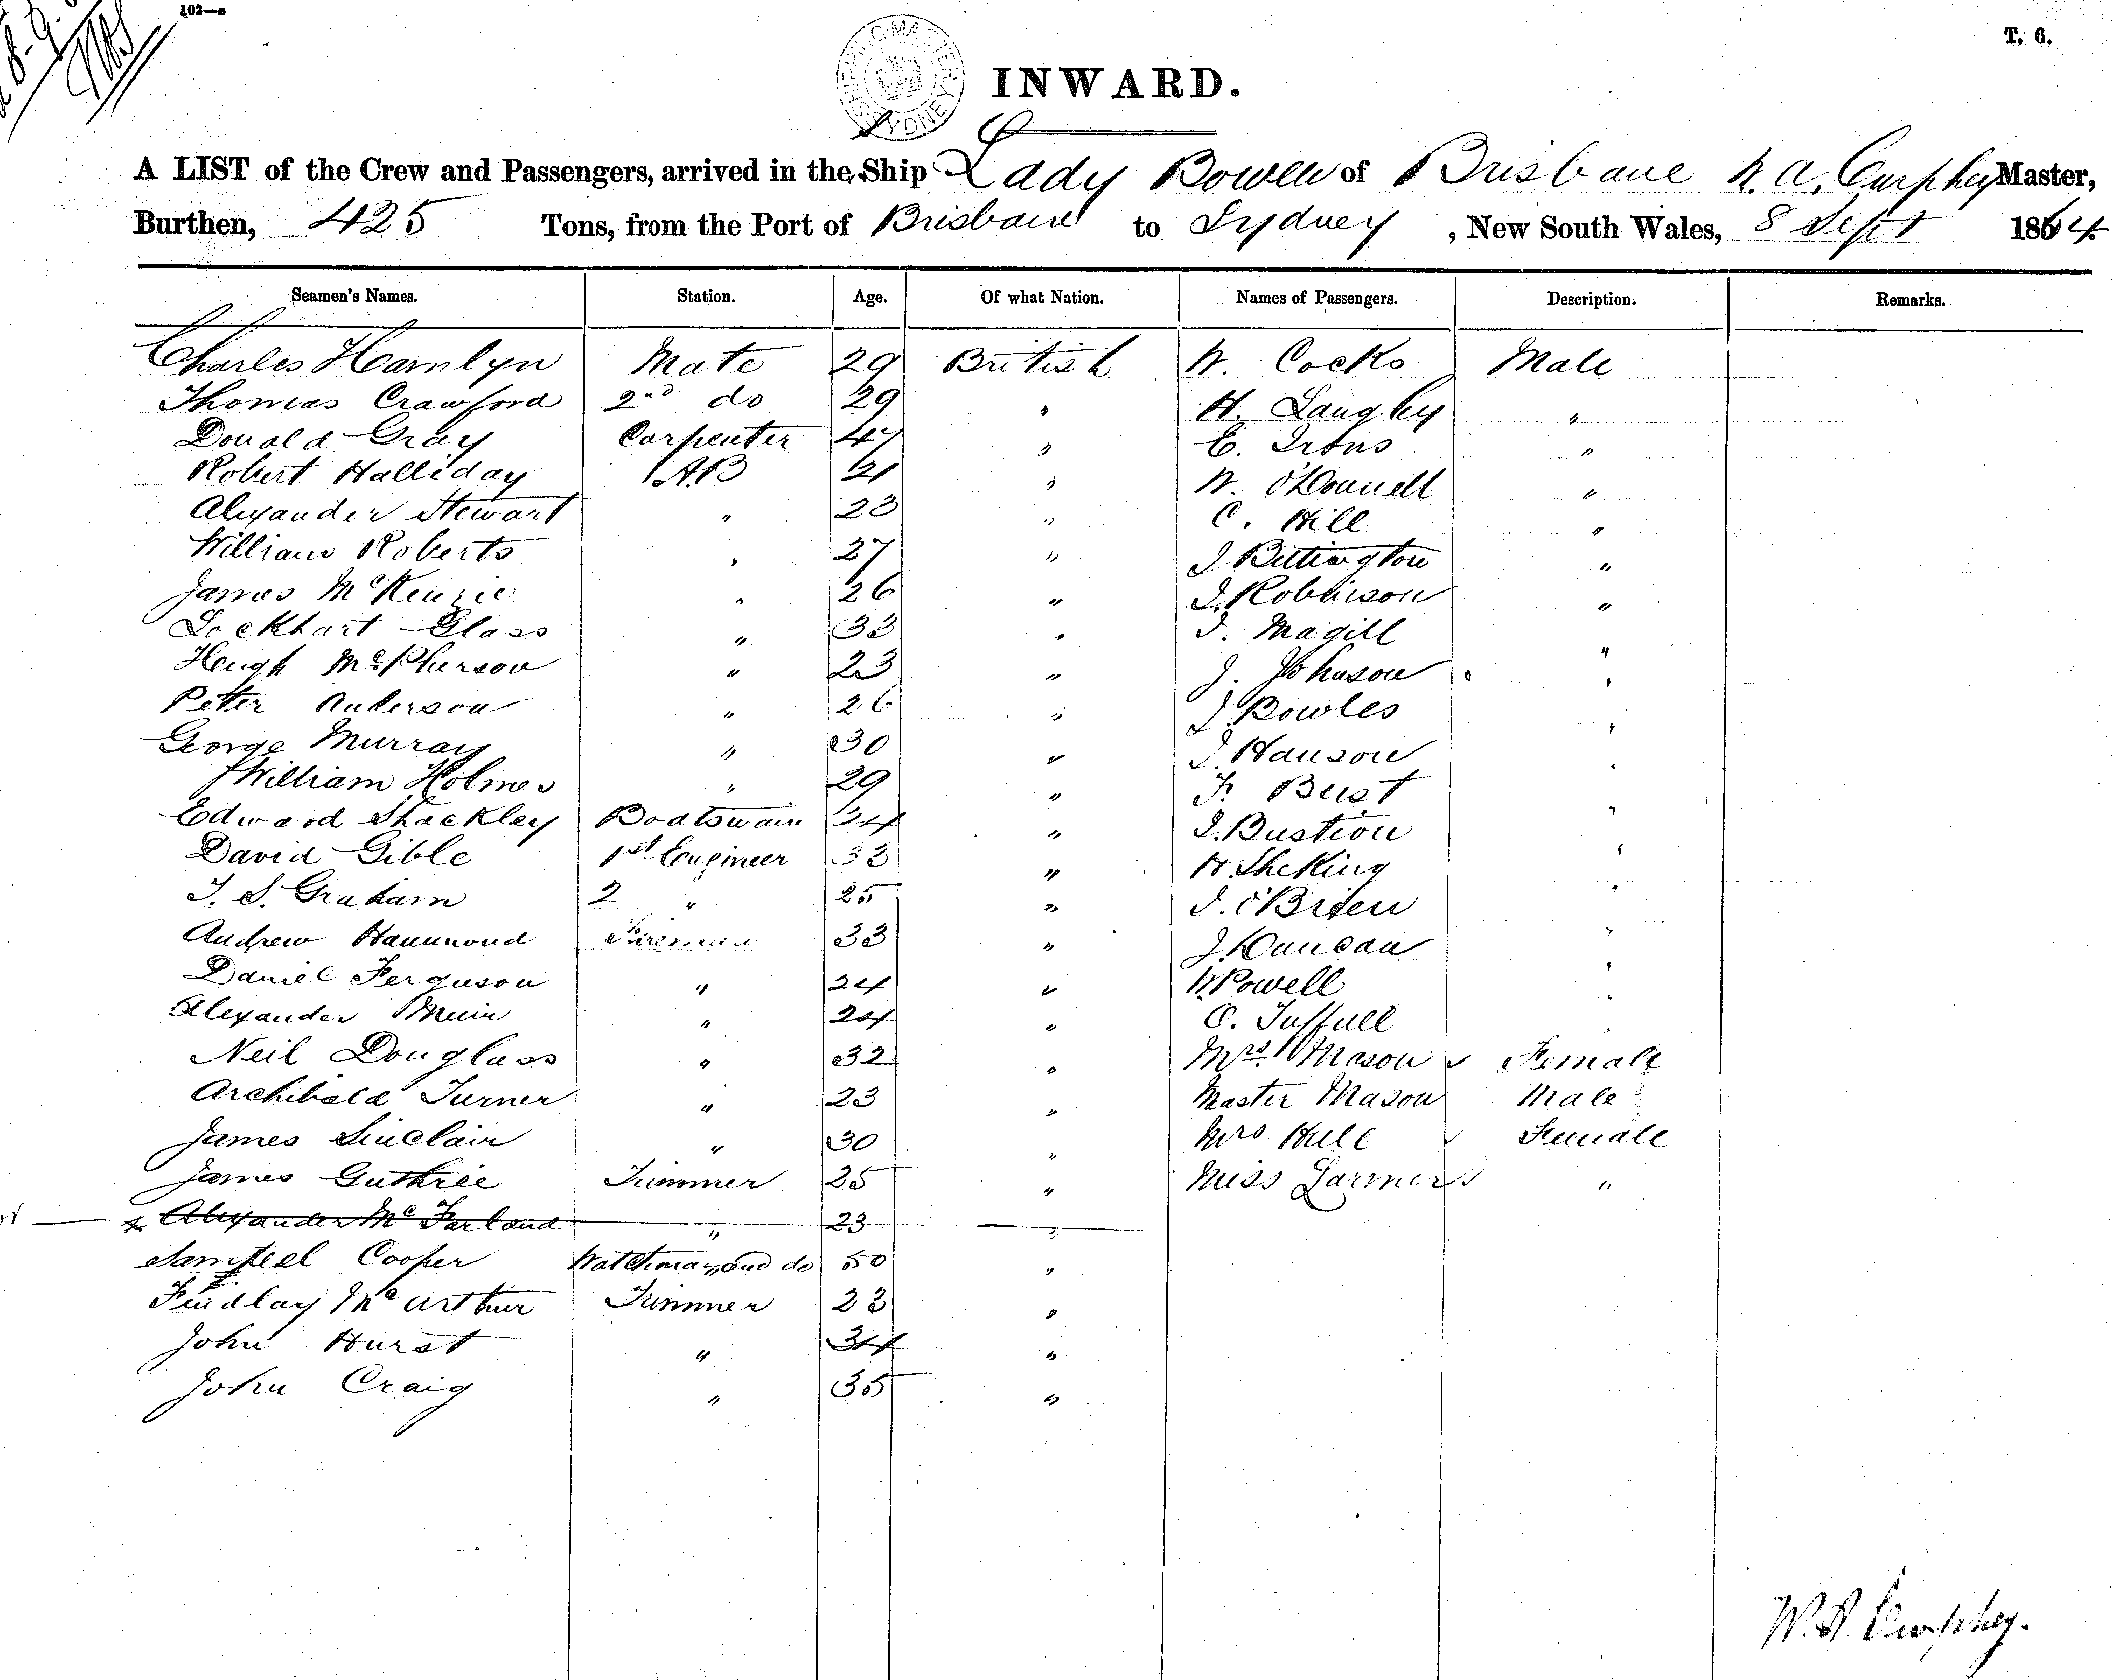 102—B
T. 6.
INWARD.
A LIST of the Crew and Passengers, arrived in the Ship Lady Bowen of Brisbane Curphey Master,
Burthen, 425 Tons, from the Port of Brisbane to Sydney, New South Wales, 8 Sept 1864
Seamen's Names. Station. Age. Of what Nation. Names of Passengers. Description. Remarks.
Charles Hamlyn Mate 29 British W. Cocks Male
Thomas Crawford 2nd do 29 " H. Langley "
Donald Gray Carpenter 47 " E. Irons "
Robert Halliday A.B 21 " W. O'Donnell "
Alexander Stewart " 23 " C. Hill "
William Roberts " 27 " J. Bettington "
James McKenzie " 26 " J. Robinson "
Lockhart Glass " 33 " J. Magill "
Hugh McPherson " 23 " J. Johnson "
Peter Anderson " 26 " J. Bowles "
George Murray " 30 " J. Hanson "
William Holmes " 29 " F. Bust "
Edward Shackley Boatswain 34 " J. Bustion "
David Gible 1st Engineer 33 " H. SheKing "
T. S. Graham 2 " 25 " J. O'Brien "
Andrew Hammond Fireman 33 " J. Duncan "
Daniel Ferguson " 24 " W. Powell "
Alexander Muir " 24 " C. "
Neil Douglass " 32 " Mrs Mason Female
Archibald Turner " 23 " Master Mason Male
James Sinclair " 30 " Mrs Hill Female
James Guthrie Trimmer 25 " Miss Larmer "
Alexander McFarland " 23 "
Samuel Cooper Watchman and do 50 "
Findlay McArthur Trimmer 23 "
John Hurst " 34 "
John Craig " 35 "
Curphey.